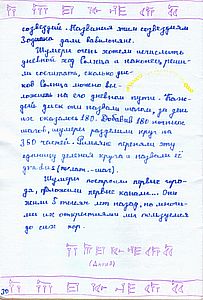 созвездий. Названия этим созвездиям
Зодиака дали вавилоняне.
Шумеры очень хотели исчислить
дневной ход Солнца и наконец реши-
ли сосчитать, сколько дис-
ков Солнца можно вы-
ложить на его дневном пути. Каж-
дый диск они назвали шагом, за день
их оказалось 180. Добавив 180 ночных
шагов, шумеры разделили круг на
360 частей. Римляне переняли эту
единицу деления круга и назвали её
gradus (полат.-шаг).
Шумеры построили первые горо-
да, проложили первые каналы... Они
жили 5 тысяч лет назад, но многи-
ми их открытиями мы пользуемся
до сих пор.
30